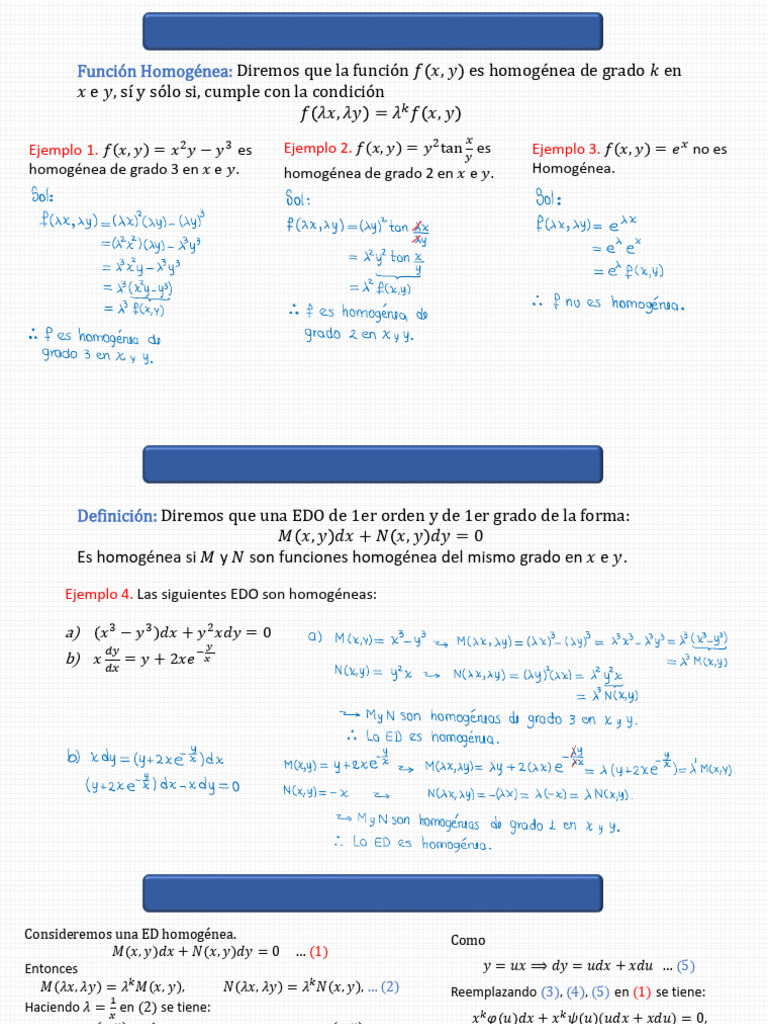 Función Homogénea: Diremos que la función f(x, y) es homogénea de grado k en
x e y, sí y sólo si, cumple con la condición
f(λx, λy) = λ^k f(x, y)
Ejemplo 1. f(x, y) = x²y − y³ es
homogénea de grado 3 en x e y.
Sol:
f(λx, λy) = (λx)²(λy) − (λy)³
= (λ²x²)(λy) − λ³y³
= λ³x²y − λ³y³
= λ³(x²y − y³)
= λ³ f(x,y)
∴ f es homogénia de
grado 3 en x y y.
Ejemplo 2. f(x, y) = y² tan x/y es
homogénea de grado 2 en x e y.
Sol:
f(λx, λy) = (λy)² tan λx/λy
= λ²y² tan x/y
= λ² f(x,y)
∴ f es homogénia de
grado 2 en x y y.
Ejemplo 3. f(x, y) = e^x no es
Homogénea.
Sol:
f(λx, λy) = e^λx
= e^λ e^x
= e^λ f(x,y)
∴ f no es homogénia.
Definición: Diremos que una EDO de 1er orden y de 1er grado de la forma:
M(x, y)dx + N(x, y)dy = 0
Es homogénea si M y N son funciones homogénea del mismo grado en x e y.
Ejemplo 4. Las siguientes EDO son homogéneas:
a) (x³ − y³)dx + y²xdy = 0
b) x dy/dx = y + 2xe^(−y/x)
a) M(x,y) = x³ − y³ ⤳ M(λx, λy) = (λx)³ − (λy)³ = λ³x³ − λ³y³ = λ³(x³ − y³)
= λ³ M(x,y)
N(x,y) = y²x ⤳ N(λx, λy) = (λy)²(λx) = λ²y²x
= λ³ N(x,y)
⤳ M y N son homogénias de grado 3 en x y y.
∴ La ED es homogénia.
b) x dy = (y + 2xe^(−y/x))dx
(y + 2xe^(−y/x))dx − xdy = 0
M(x,y) = y + 2xe^(−y/x) ⤳ M(λx, λy) = λy + 2(λx)e^(−λy/λx) = λ(y + 2xe^(−y/x)) = λ¹M(x,y)
N(x,y) = −x ⤳ N(λx, λy) = −(λx) = λ(−x) = λN(x,y).
⤳ M y N son homogénias de grado 1 en x y y.
∴ La ED es homogénia.
Consideremos una ED homogénea.
M(x, y)dx + N(x, y)dy = 0 … (1)
Entonces
M(λx, λy) = λ^k M(x, y), N(λx, λy) = λ^k N(x, y), … (2)
Haciendo λ = 1/x en (2) se tiene:
Como
y = ux ⟹ dy = udx + xdu … (5)
Reemplazando (3), (4), (5) en (1) se tiene:
x^k φ(u)dx + x^k ψ(u)(udx + xdu) = 0,